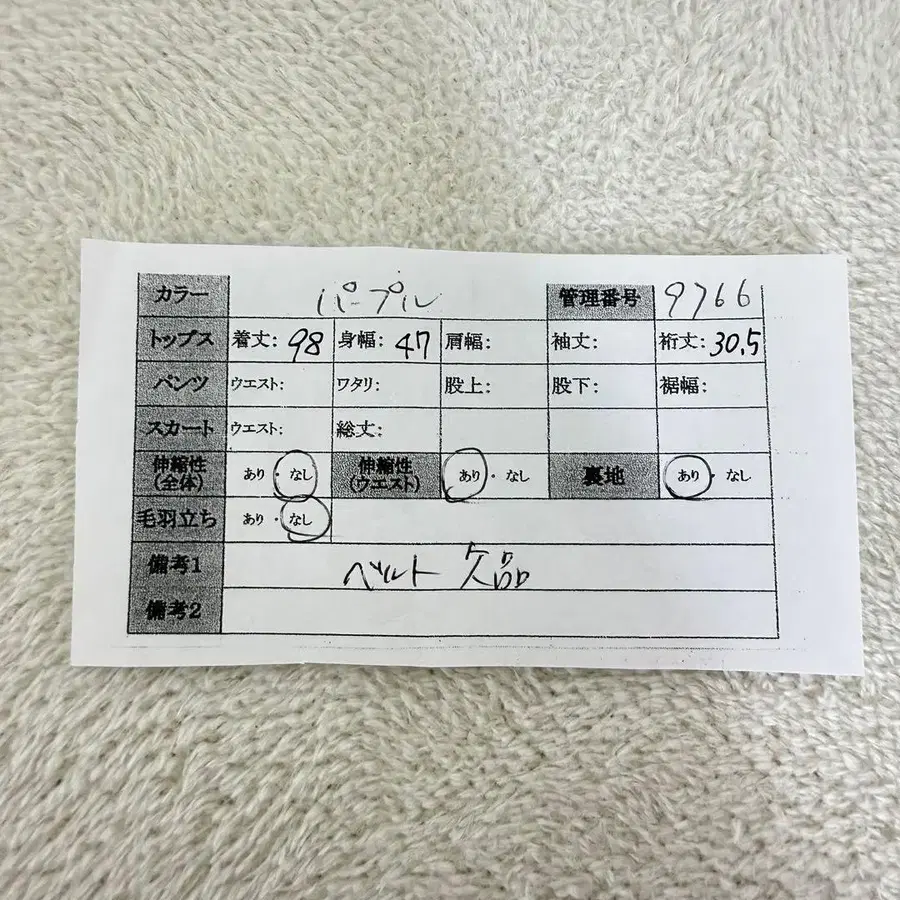 カラー パープル 管理番号 9766
トップス 着丈: 98 身幅: 47 肩幅: 袖丈: 裄丈: 30.5
パンツ ウエスト: ワタリ: 股上: 股下: 裾幅:
スカート ウエスト: 総丈:
伸縮性(全体) あり・なし 伸縮性(ウエスト) あり・なし 裏地 あり・なし
毛羽立ち あり・なし
備考1 ベルト欠品
備考2